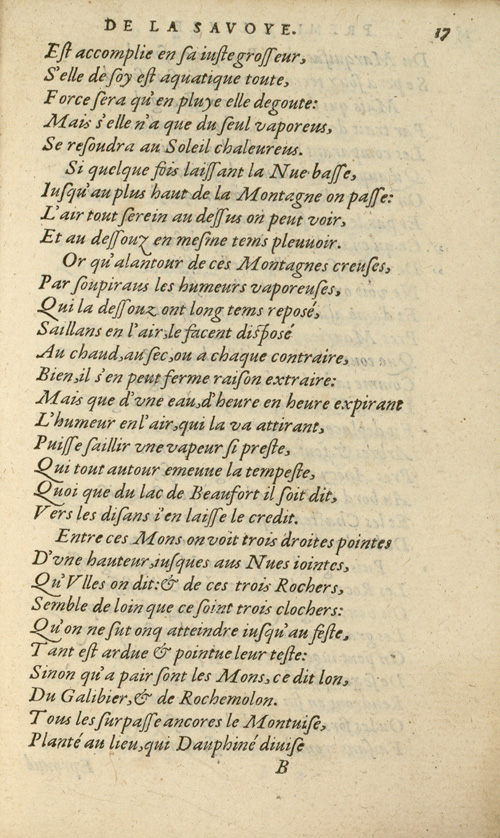 DE LA SAVOYE. 17
Est accomplie en sa iuste grosseur,
S'elle de soy est aquatique toute,
Force sera qu'en pluye elle degoute:
Mais s'elle n'a que du seul vaporeus,
Se resoudra au Soleil chaleureus.
Si quelque fois laissant la Nue basse,
Iusqu'au plus haut de la Montagne on passe:
L'air tout serein au dessus on peut voir,
Et au dessouz en mesme tems pleuuoir.
Or qu'alantour de ces Montagnes creuses,
Par soupiraus les humeurs vaporeuses,
Qui la dessouz ont long tems reposé,
Saillans en l'air, le facent disposé
Au chaud, au sec, ou a chaque contraire,
Bien, il s'en peut ferme raison extraire:
Mais que d'vne eau, d'heure en heure expirant
L'humeur en l'air, qui la va attirant,
Puisse saillir vne vapeur si preste,
Qui tout autour emeuue la tempeste,
Quoi que du lac de Beaufort il soit dit,
Vers les disans i'en laisse le credit.
Entre ces Mons on voit trois droites pointes
D'vne hauteur, iusques aus Nues iointes,
Qu'Vlles on dit: & de ces trois Rochers,
Semble de loin que ce soint trois clochers:
Qu'on ne sut onq atteindre iusqu'au feste,
Tant est ardue & pointue leur teste:
Sinon qu'a pair sont les Mons, ce dit lon,
Du Galibier, & de Rochemolon.
Tous les surpasse ancores le Montuise,
Planté au lieu, qui Dauphiné diuise
B